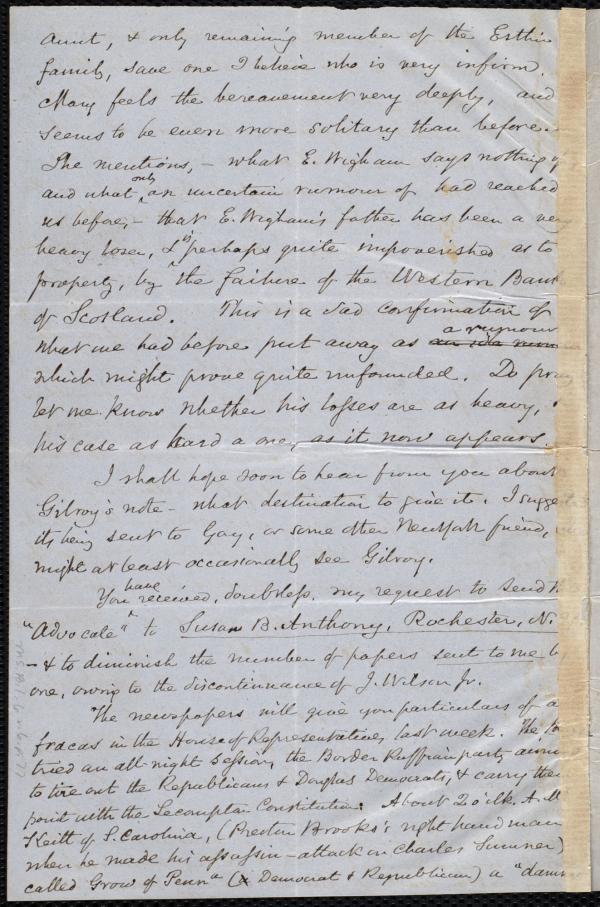 aunt, & only remaining member of the
family, save one I believe who is very infirm.
Mary feels the bereavement very deeply, and
seems to be even more solitary than before.
She mentions, - what E. Wigham says nothing of
and what only an uncertain rumour of had reached
us before, - that E. Wigham's father has been a very
heavy loser, & is perhaps quite impoverished as to
property, by the failure of the Western Bank
of Scotland. This is a sad confirmation of
what we had before put away as a rumour
which might prove quite unfounded. Do pray
let me know whether his losses are as heavy, &
his case as hard a one, as it now appears.
I shall hope soon to hear from you about
Gilroy's note - what destination to give it. I suggest
its being sent to Gay, or some other New York friend, who
might at least occasionally see Gilroy.
You have received, doubtless, my request to send the
"Advocate" to Susan B. Anthony, Rochester, N.
- & to diminish the number of papers sent to me by
one, owing to the discontinuance of J. Wilson Jr.
The newspapers will give you particulars of a
fracas in the House of Representatives, last week. The
tried an all-night session, the Border Ruffian party
to tire out the Republicans & Douglas Democrats, & carry their
point with the Lecompton Constitution. About 2 o'clk. A.M.
Keitt of S. Carolina, (Preston Brooks's right hand man
when he made his assassin-attack on Charles Sumner)
called Grow of Penna (a Democrat & Republican) a "damn